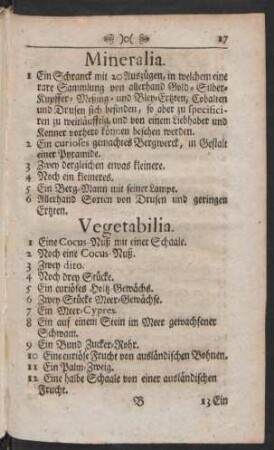 )o( 17
Mineralia.
1 Ein Schranck mit 20 Auszügen, in welchem eine
rare Sammlung von allerhand Gold- Silber-
Kupffer- Meßing- und Bley-Ertzten, Cobalten
und Drusen sich befinden, so aber zu specifici-
ren zu weitläufftig, und von einem Liebhaber und
Kenner vorhero können besehen werden.
2 Ein curioses gemachtes Bergwerck, in Gestalt
einer Pyramide.
3 Zwey dergleichen etwas kleinere.
4 Noch ein kleineres.
5 Ein Berg-Mann mit seiner Lampe.
6 Allerhand Sorten von Drusen und geringen
Ertzten.
Vegetabilia.
1 Eine Cocus-Nuß mit einer Schaale.
2 Noch eine Cocus-Nuß.
3 Zwey dito.
4 Noch drey Stücke.
5 Ein curiöses Holtz Gewächs.
6 Zwey Stücke Meer-Gewächse.
7 Ein Meer-Cypres.
8 Ein auf einem Stein im Meer gewachsener
Schwam.
9 Ein Bund Zucker-Rohr.
10 Eine curiöse Frucht von ausländischen Bohnen.
11 Ein Palm-Zweig.
12 Eine halbe Schaale von einer ausländischen
Frucht.
B 13 Ein